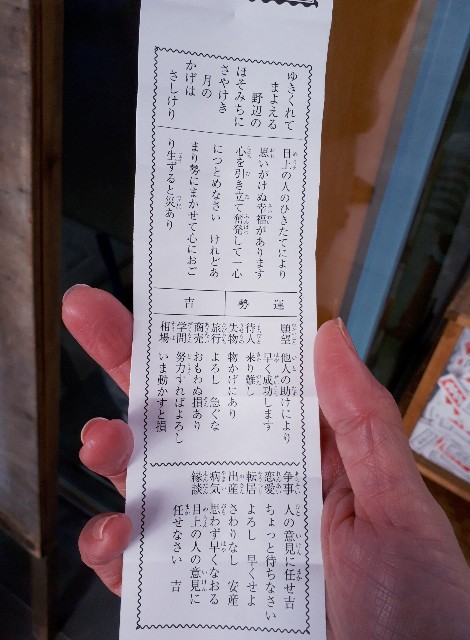 ゆきくれて
まよえる
野辺の
ほそみちに
さやけき
月の
かげは
さしけり
目上の人のひきたてにより
思いがけぬ幸福があります
心を引き立て奮発して一心
につとめなさい けれどあ
まり勢にまかせて心におご
り生ずると災あり
運勢 吉
願望 他人の助けにより
早く成功します
待人 来り難し
失物 物かげにあり
旅行 よろし 急ぐな
商売 おもわぬ損あり
学問 努力すればよろし
相場 いま動かすと損
争事 人の意見に任せ吉
恋愛 ちょっと待ちなさい
転居 よろし 早くせよ
出産 さわりなし 安産
病気 思わず早くなおる
縁談 目上の人の意見に
任せなさい 吉